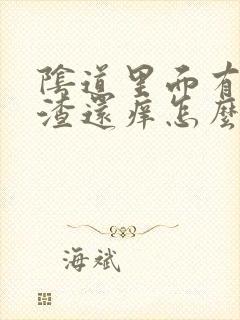 陰道里面有
渣還痒怎麼
海斌